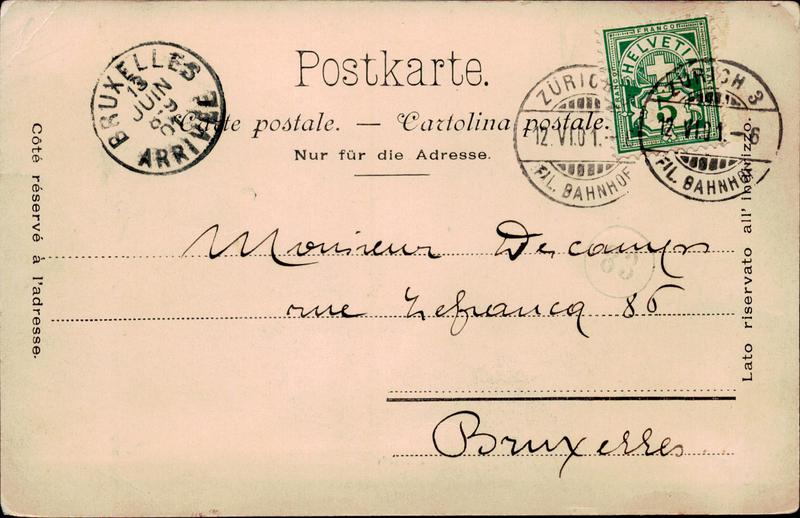 Postkarte.
Carte postale. — Cartolina postale.
Nur für die Adresse.
BRUXELLES
13
JUIN
8-9
ARRIVÉE
FRANCO
HELVETIA
FRANCO
5
ZÜRICH 3
12.VI.01.
FIL. BAHNHOF
ZÜRICH 3
12.VI.01.–6
FIL. BAHNHOF
Côté réservé à l'adresse.
Lato riservato all'indirizzo.
63
Monsieur Descamps
rue Lefrancq 86
Bruxelles